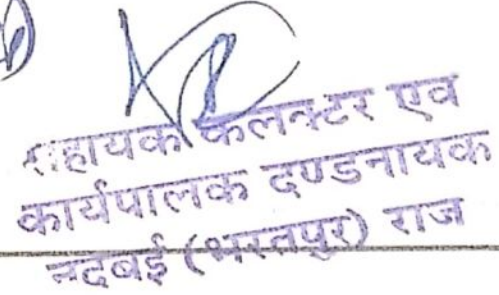 सहायक कलक्टर एव
कार्यपालक दण्डनायक
नदबई (भरतपुर) राज